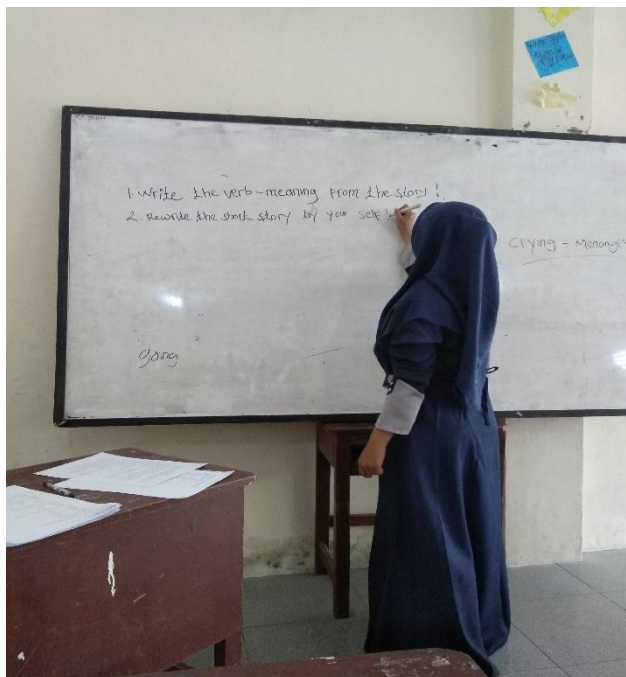 1. Write the verb - meaning from the story !
2. Rewrite the short story by your self
Crying - Menangis
gang